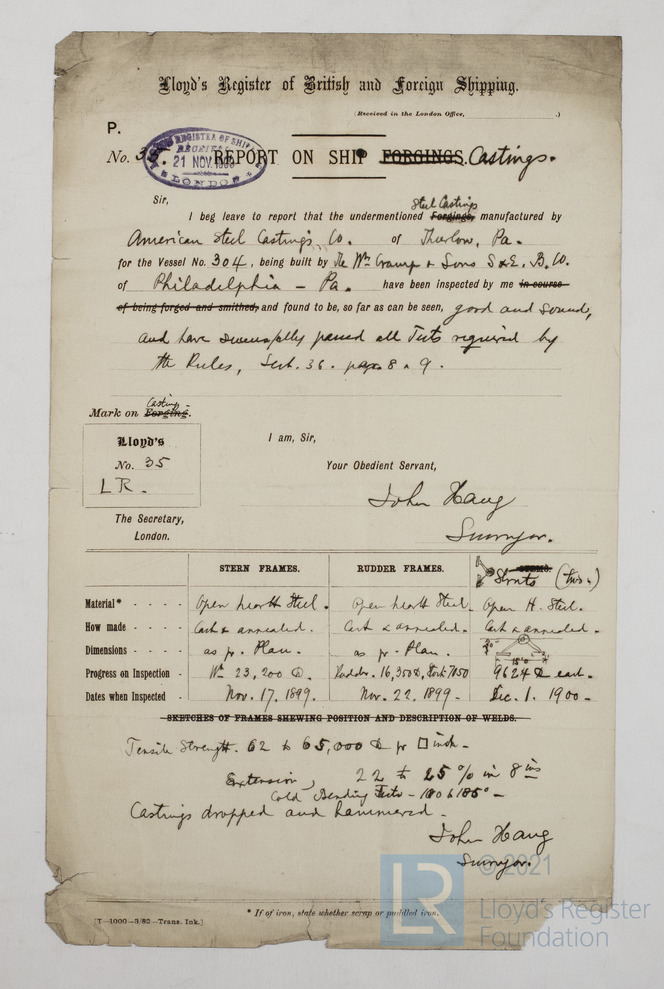 Lloyd's Register of British and Foreign Shipping.
(Received in the London Office, .)
P.
No. 35. REPORT ON SHIP FORGINGS. Castings.
LLOYD'S REGISTER OF SHIPPING
RECEIVED
21 NOV.
LONDON
Sir,
Steel Castings
I beg leave to report that the undermentioned Forgings, manufactured by
American Steel Castings Co. of Thurlow, Pa.
for the Vessel No. 304, being built by The Wm Cramp & Sons S & E. B. Co.
of Philadelphia - Pa. have been inspected by me in course
of being forged and smithed, and found to be, so far as can be seen, good and sound,
and have successfully passed all Tests required by
the Rules, Sect. 36. pages 8 & 9.
Castings
Mark on Forging.
Lloyd's
No. 35
LR.
I am, Sir,
Your Obedient Servant,
John Haug
Surveyor.
The Secretary,
London.
STERN FRAMES. RUDDER FRAMES. Struts (two.)
Material* - - - - Open hearth Steel. Open hearth Steel. Open H. Steel.
How made - - - - Cast & annealed. Cast & annealed. Cast & annealed.
Dimensions - - - - as pr. Plan. as pr. Plan.
Progress on Inspection - Wt. 23,200 lb. Rudder. 16,350 lb, Stock 7850 9624 lb each.
Dates when Inspected - Nov. 17. 1899. Nov. 22. 1899 - Dec. 1. 1900 -
SKETCHES OF FRAMES SHEWING POSITION AND DESCRIPTION OF WELDS.
Tensile Strength. 62 to 65,000 lb pr □ inch -
Extension, 22 to 25 % in 8 ins
Cold Bending Tests - 180 to 185° -
Castings dropped and hammered -
John Haug
Surveyor.
* If of iron, state whether scrap or puddled iron.
[T—1000—3/82—Trans. Ink.]
LR
© 2021
Lloyd's Register
Foundation